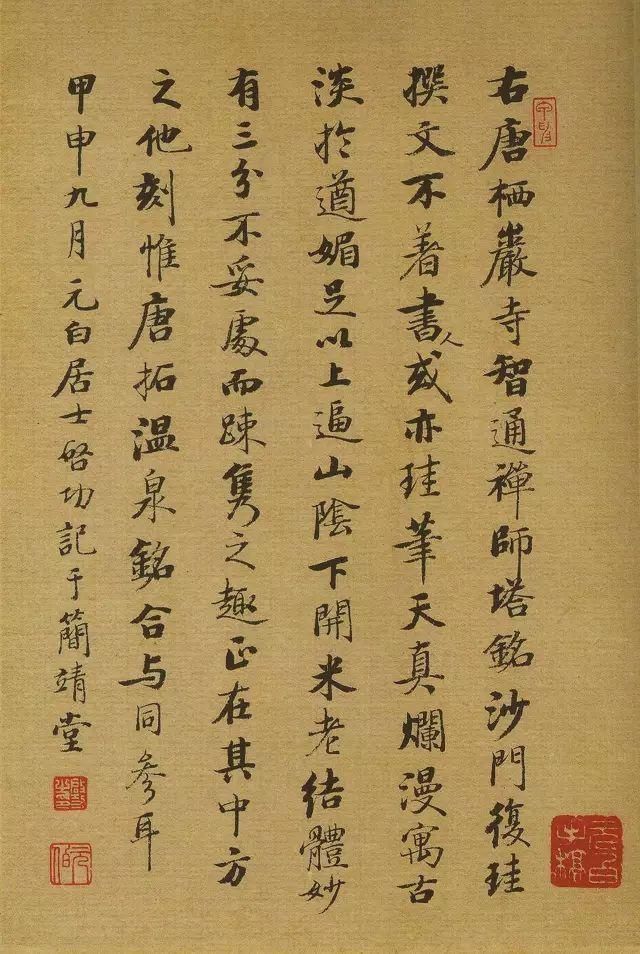 右唐栖巖寺智通禪師塔銘沙門復珪
撰文不著書人或亦珪筆天真爛漫寓古
淡於遒媚足以上逼山陰下開米老結體妙
有三分不妥處而踈雋之趣正在其中方
之他刻惟唐拓溫泉銘合与同參耳
甲申九月元白居士啓功記于簡靖堂